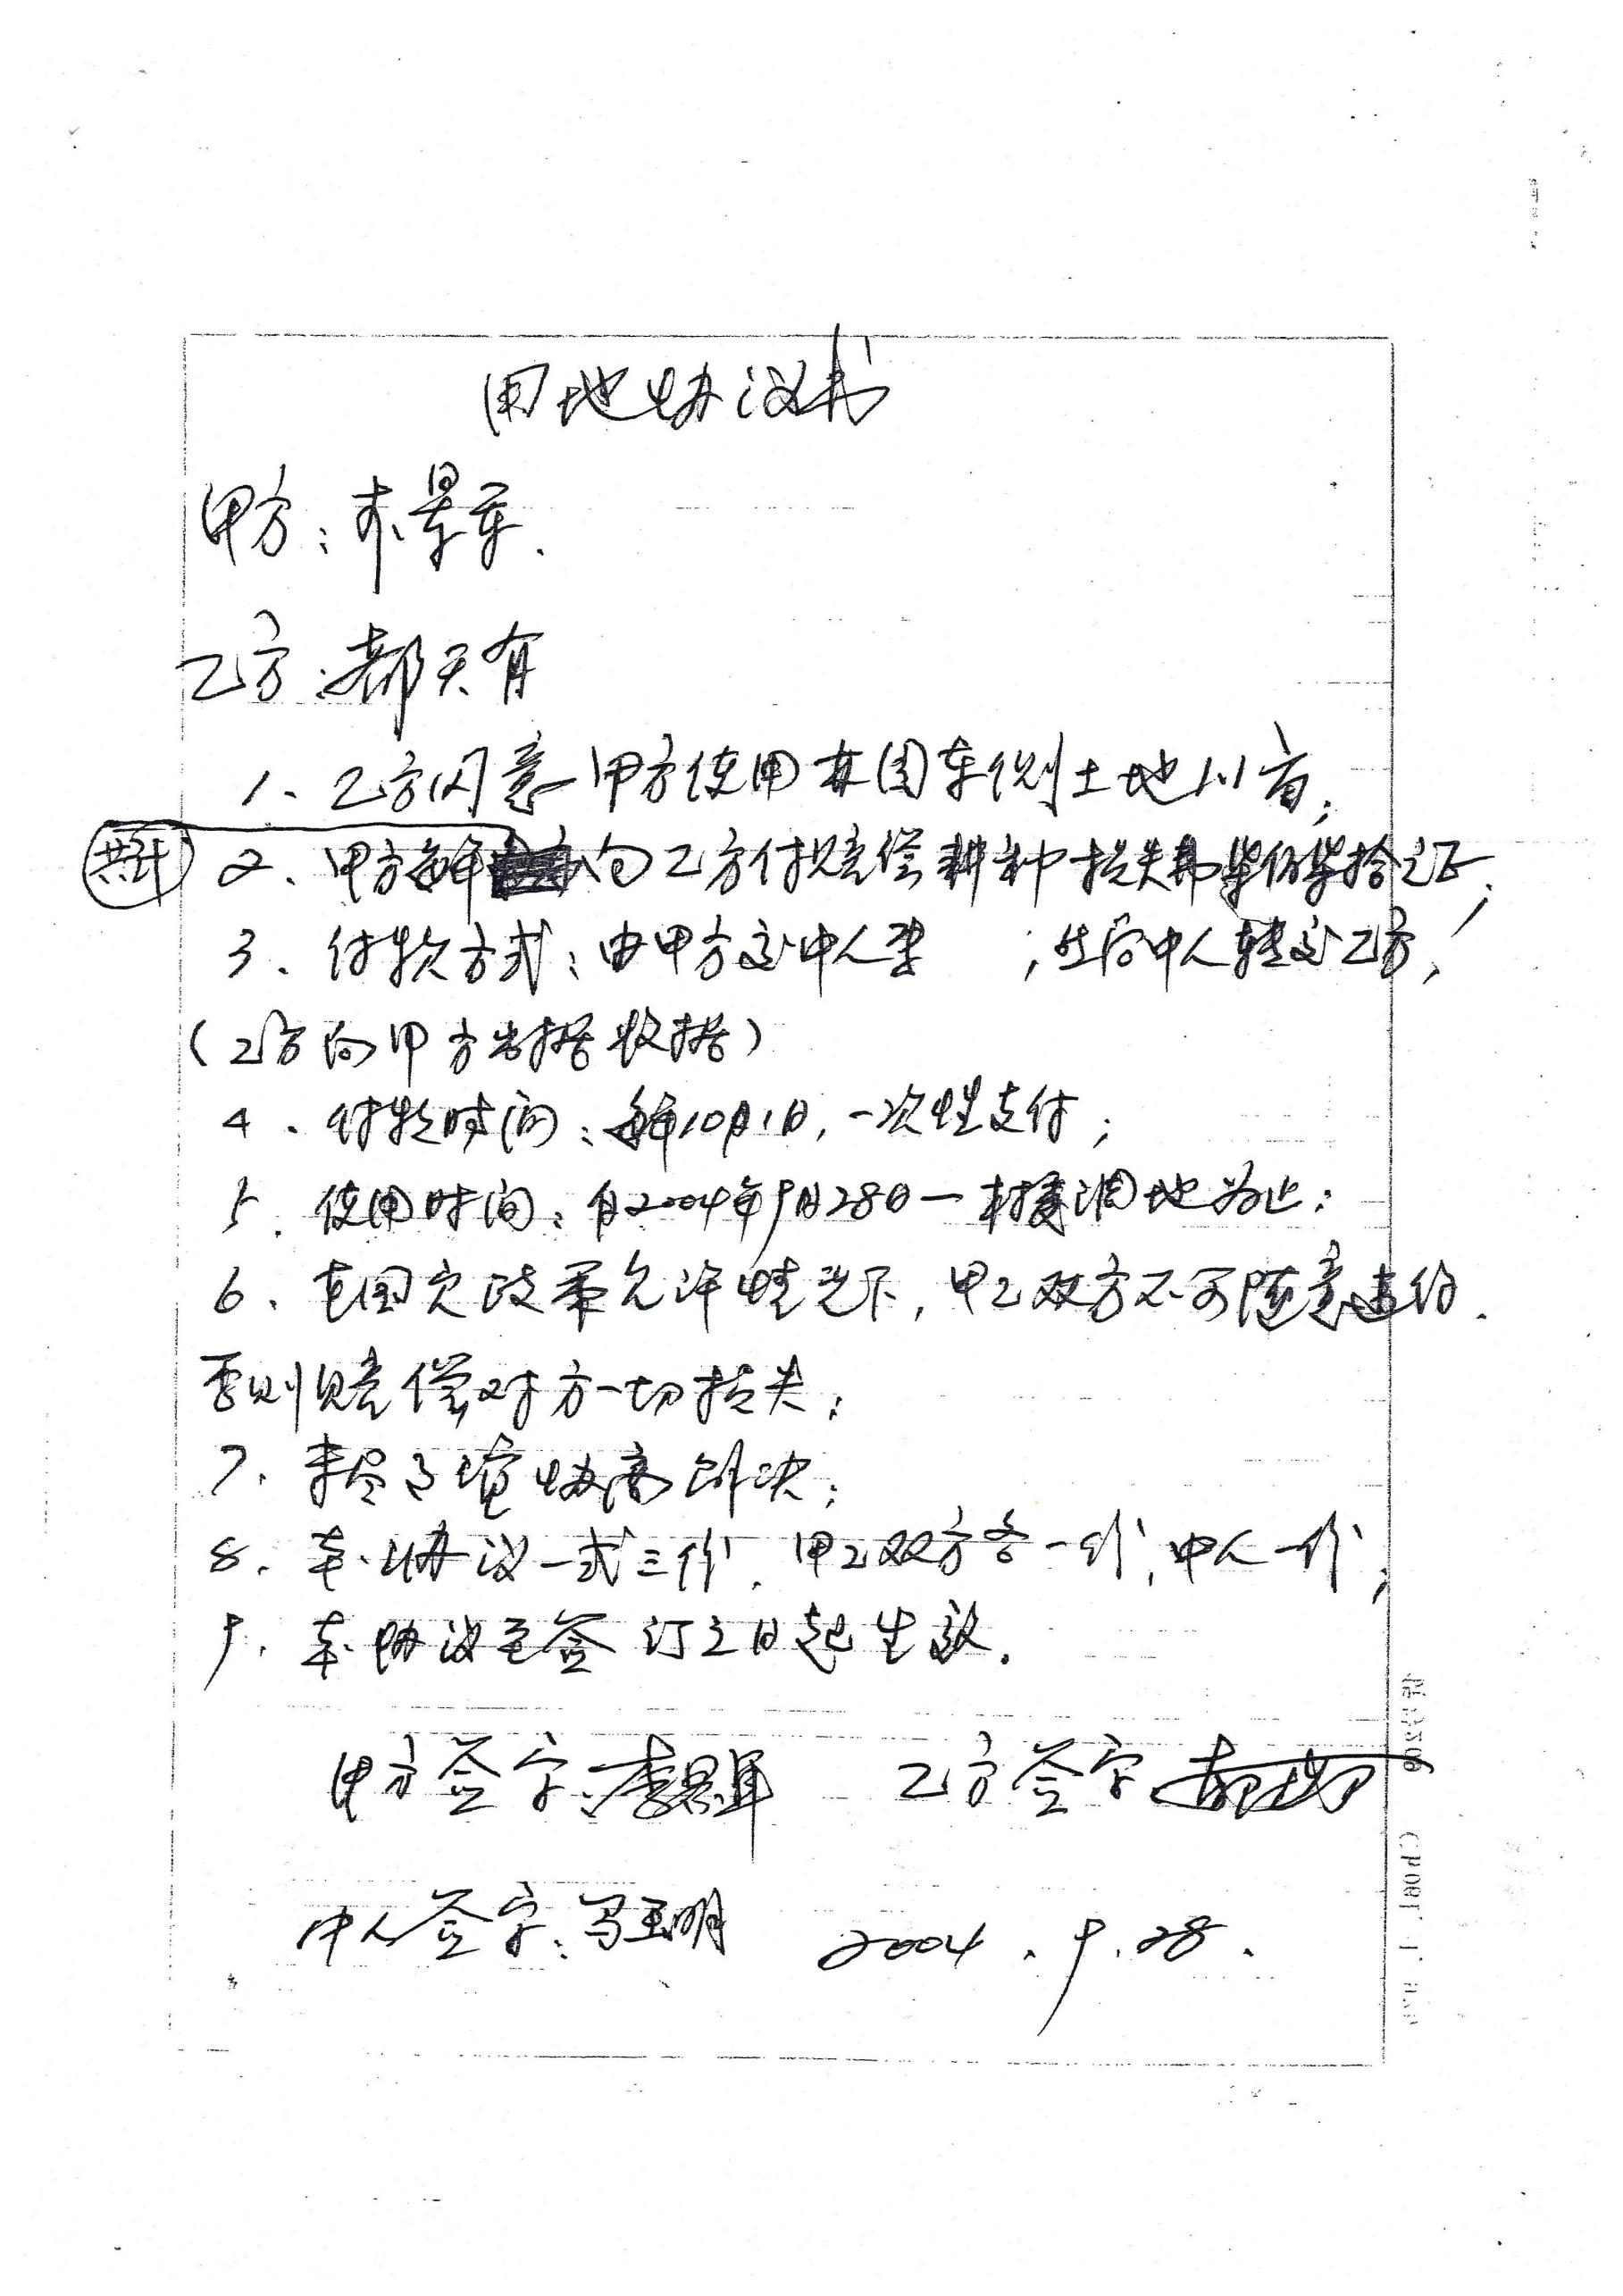 用地协议书
甲方：李景军.
乙方：郝天有
1、乙方同意甲方使用其园东侧土地1.1亩；
共计
2、甲方每年向乙方付赔偿耕种损失费柒佰柒拾元正；
3、付款方式：由甲方交中人李 ；然后中人转交乙方，
（乙方向甲方出据收据）
4、付款时间：每年10月1日，一次性支付；
5、使用时间：自2004年9月28日一村里调地为止；
6、在国家政策允许情况下，甲乙双方不可随意违约.
否则赔偿对方一切损失；
7、未尽事宜协商解决；
8、本协议一式三份，甲乙双方各一份，中人一份；
9、本协议至签订之日起生效.
甲方签字：李景军 乙方签字
中人签字：马玉明 2004.9.28.